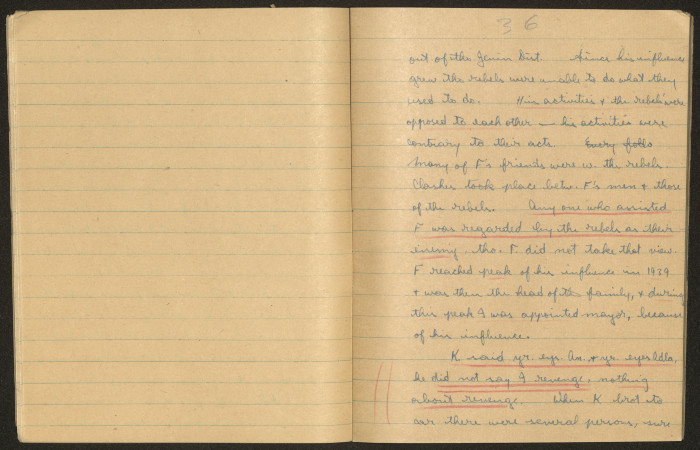 36
out of the Jenin Dist. Since his influence
grew the rebels were unable to do what they
used to do. His activities & the rebels were
opposed to each other — his activities were
contrary to their acts. Every
Many of F's friends were w. the rebels.
Clashes took place betw. F's men & those
of the rebels. Any one who assisted
F was regarded by the rebels as their
enemy, tho. F did not take that view.
F reached peak of his influence in 1939
& was then the head of the family, & during
this peak I was appointed mayor, because
of his influence.
K said yr. eye. & yr. eyes
he did not say I revenge, nothing
about revenge. When K brot to
car there were several persons, sure